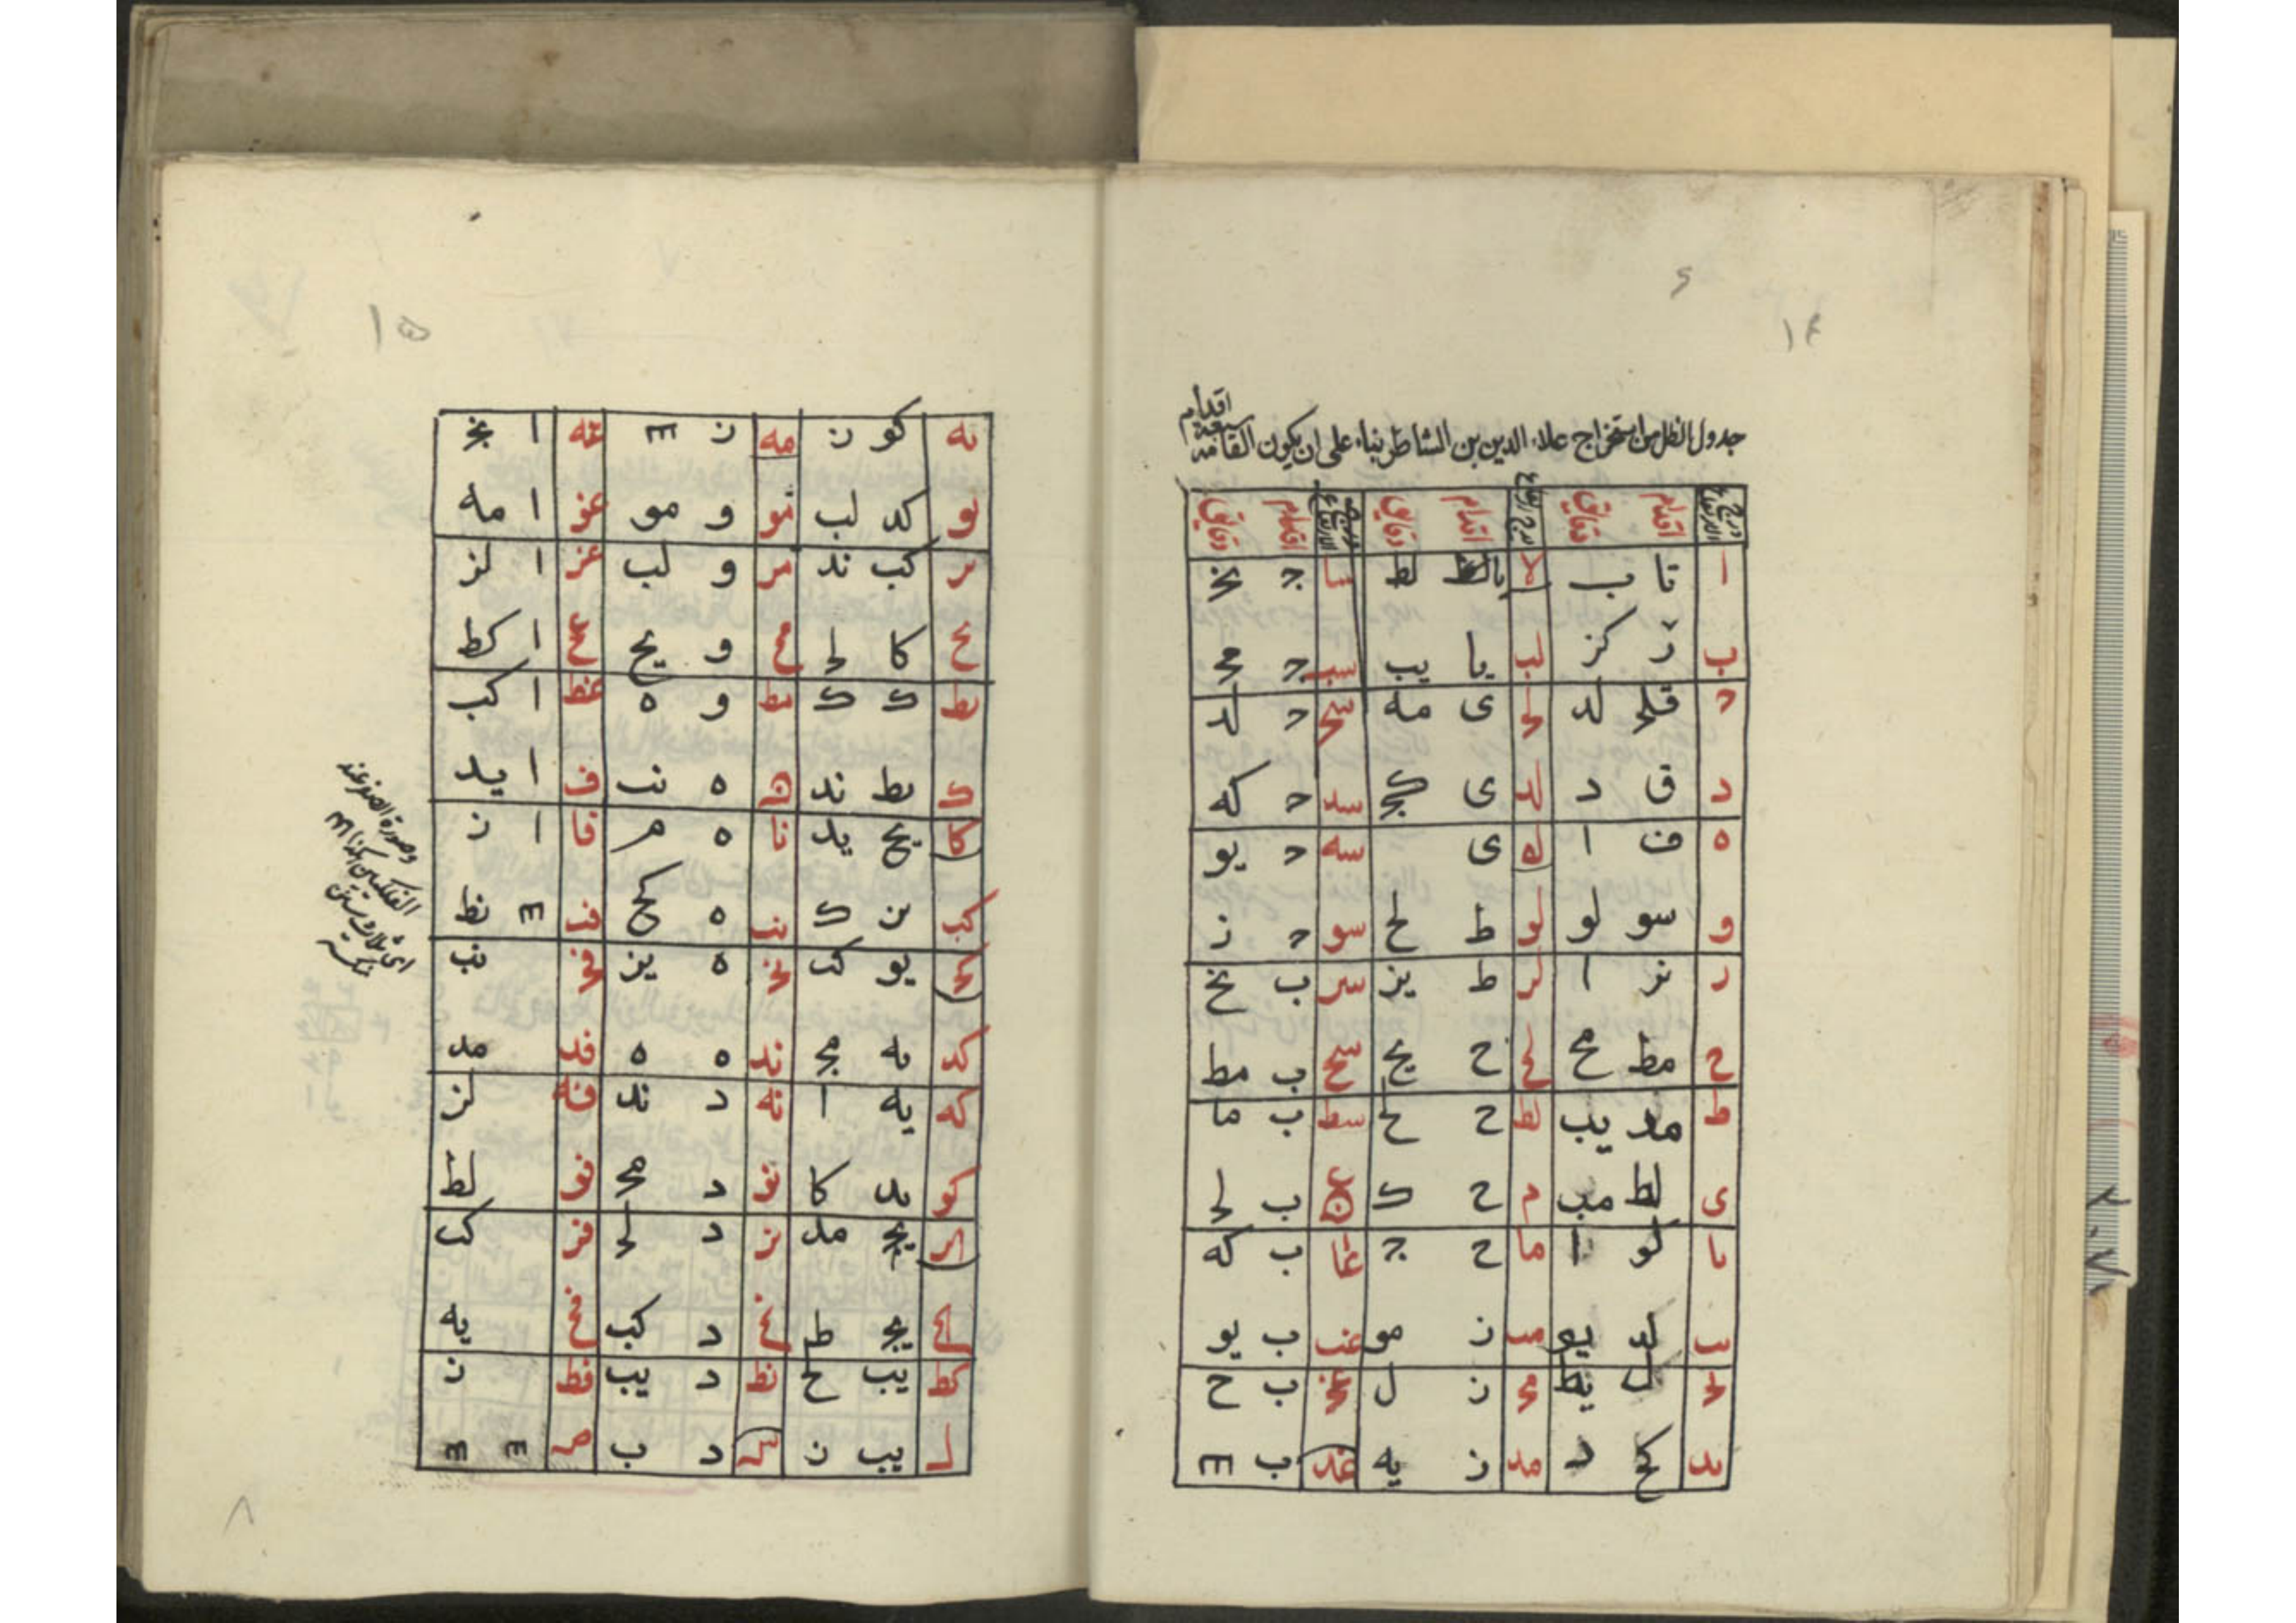 ٦
١٤
جدول الظل من استخراج علاء الدين بن الشاطر بناء على ان يكون القامة سبعة اقدام
درج الارتفاع اقدام دقايق درج الارتفاع اقدام دقايق درج الارتفاع اقدام دقايق
ا تا ب لا يا لط سا ج نح
ب ر كز لب يا يب سب ح مح
ح قلح لد لح ى مه سح ح لد
د ق د لد ى كح سد ح كه
ه ف ا له ى سه ح يو
و سو لو لو ط لح سو ح ز
ر نز ا لر ط يز سر ب نح
ح مط مح لح ح يح سح ب مط
ط مد يب لط ح لح سط ب ما
ى لط مب م ح ك ع ب لح
يا لو ا ما ح ج عا ب كه
يب لد يو مب ز مو عب ب يو
يح ل يط مح ز ل عح ب ح
يد كح د مد ز يه عد ب
١٥
يه كو ز مه ز عه ا نح
يو كد لب مو و مو عو ا مه
ير كب ند مر و لب عز ا لز
يح كا لح مح و يح عح ا كط
يط ك ك مط و ه عط ا كب
ك يط ند ن ه نب ف ا يد
كا يح يد نا ه م فا ا ز
كب يز ك نب ه كح فب نط
كح يو كب نح ه يز فح نب
كد يه مح ند ه ه فد مد
كه يه ا نه د ند فه لز
كو يد كا نو د مح فو لط
كر يح مد نز د لح فز كب
كح يح ط نح د كب فح يه
كط يب ح نط د يب فط ز
ل يب ز س د ب ص
وصورة الصفر عند
الفلكيين هكذا
اى ثلاث سنين
نكسه
٨